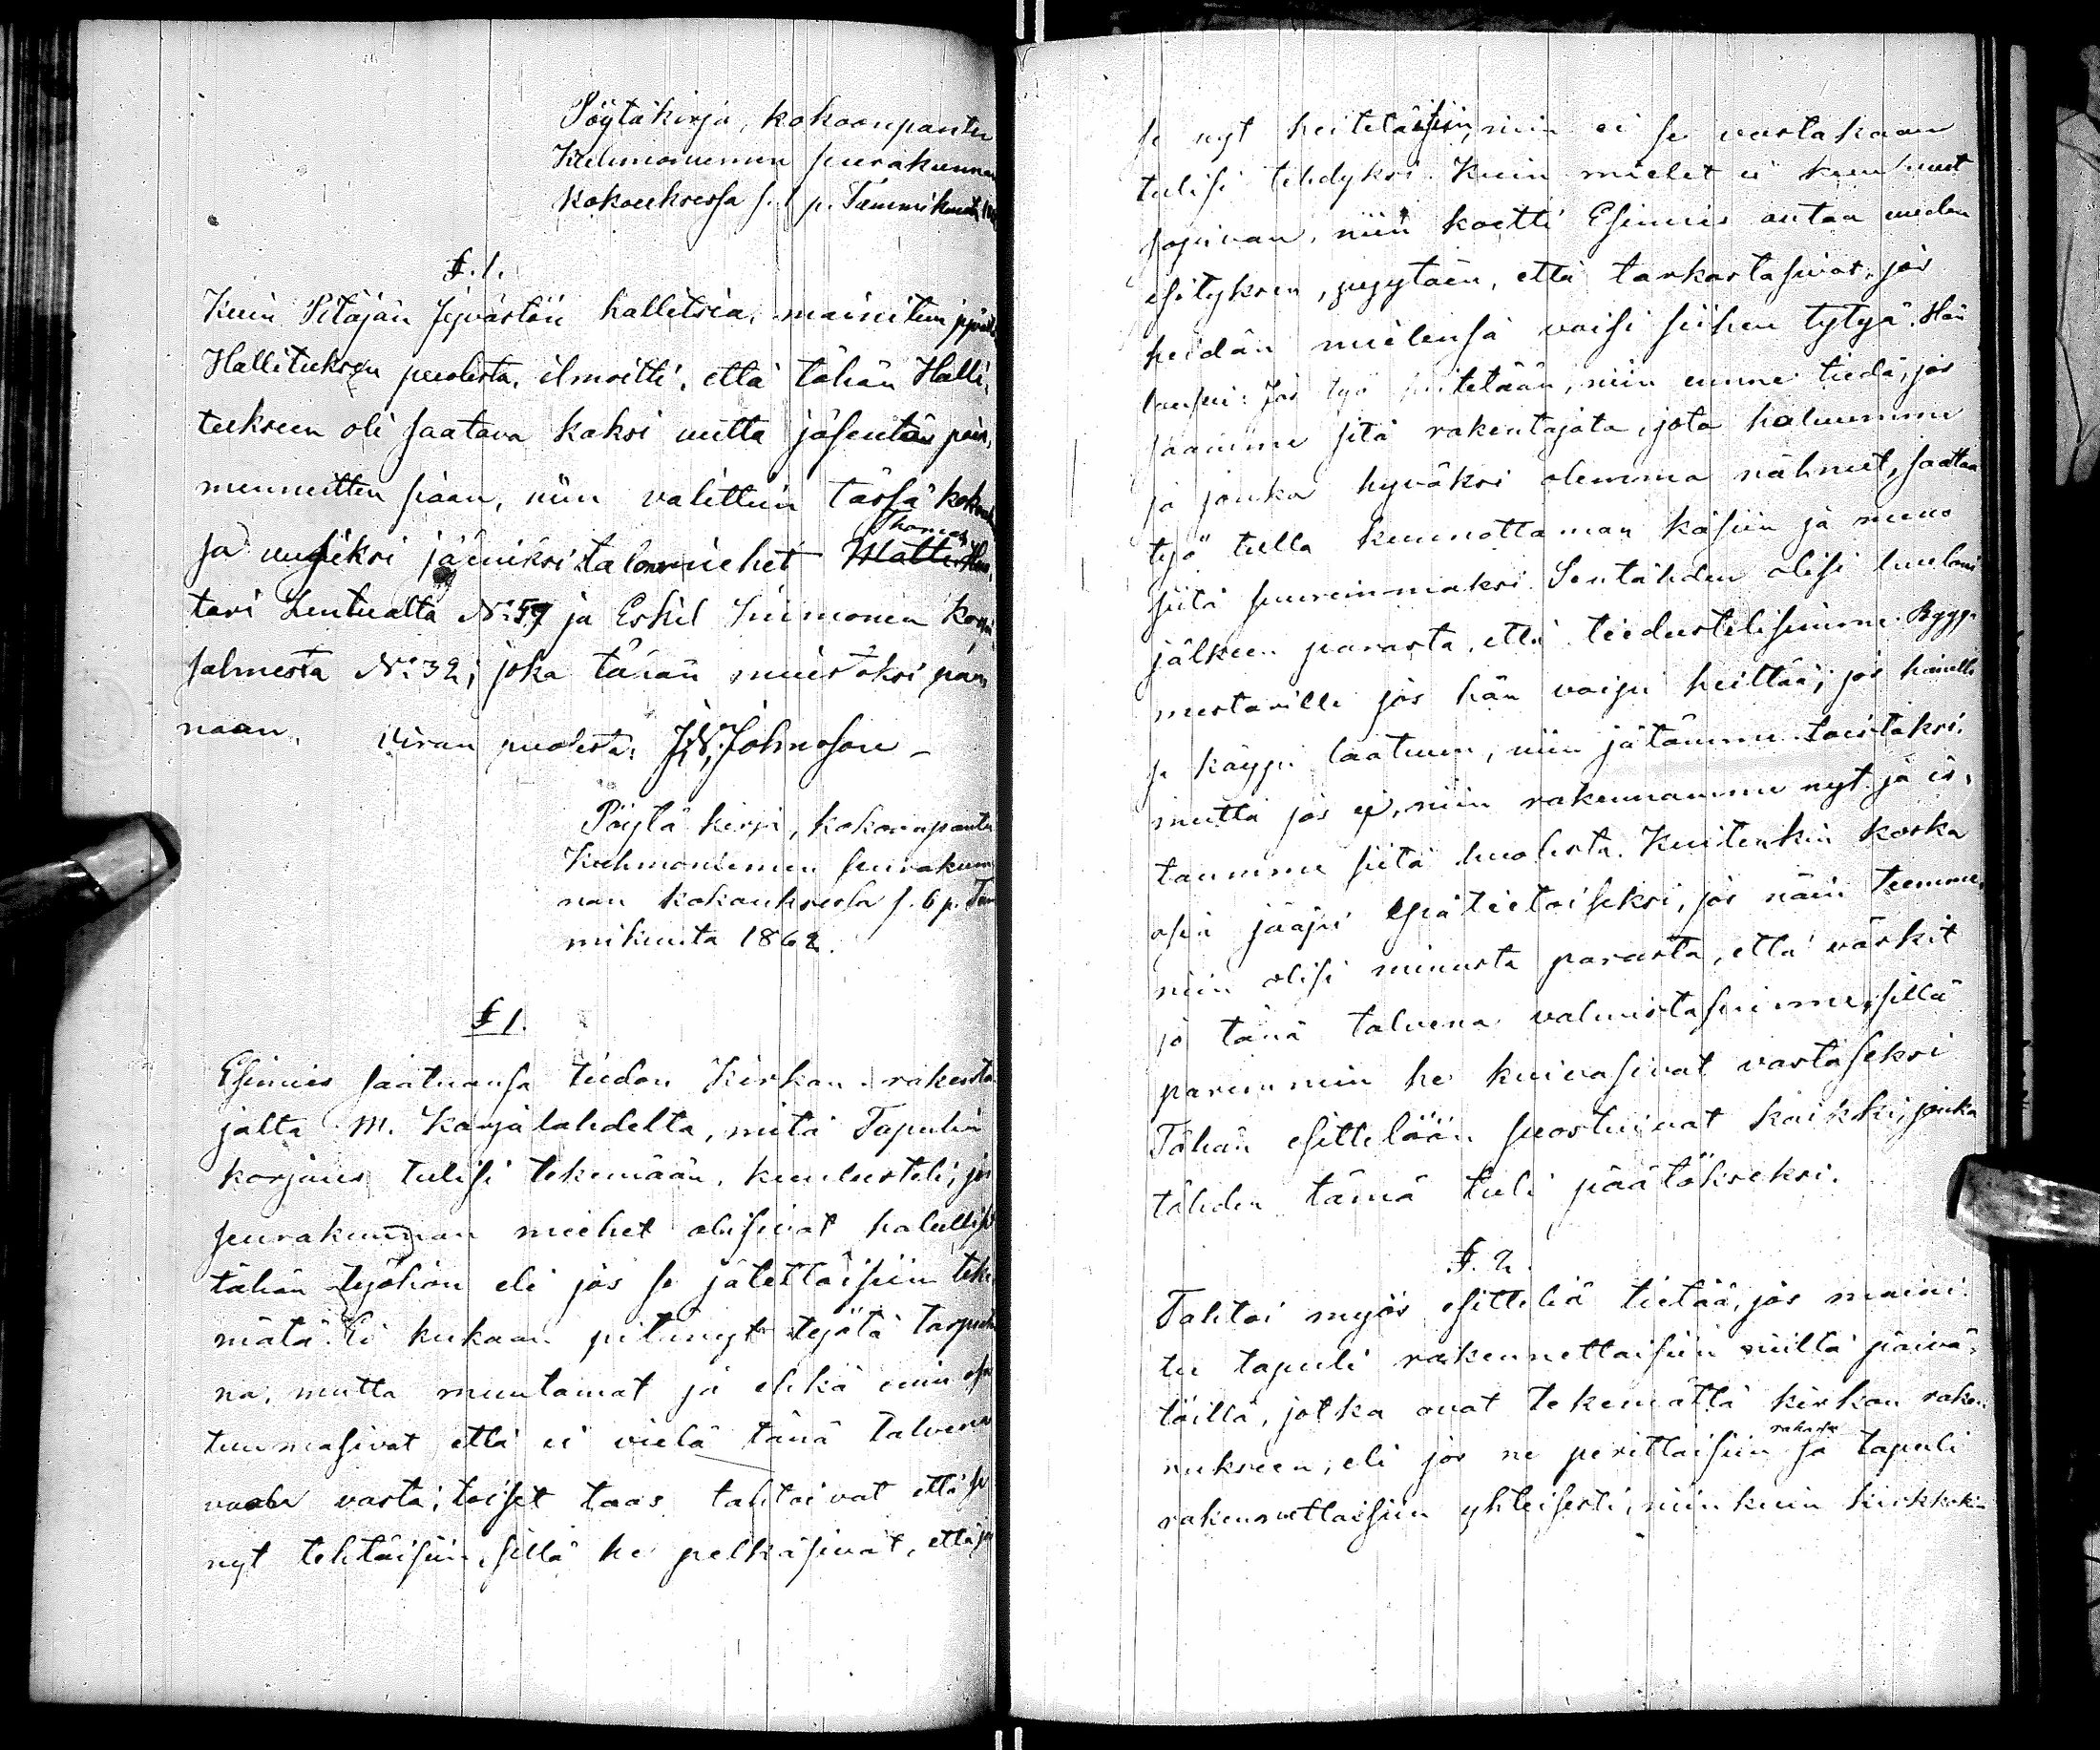 Pöytäkirja, kokoonpantu
Kuhmoniemen seurakunnan
kokouksessa s. 1 p. Tammikuuta
§. 1.
Kuin Pitäjän jyvästön hallitsia, mainitun jyväs,
Hallituksen puolesta, ilmoitti, että tähän Halli,
tukseen oli saatava kaksi uutta jäsentä pois,
menneitten siaan, niin valittiin tässä kokouk
Thomas
sa uusiksi jäniksi talonmiehet Matti
tari Lentualta No 59 ja Eskil Kiimonen
salmesta No 32; joka tänän muistoksi pan,
naan. Viran puolesta: J.W. Johnsson
Pöytä kirja, kokoonpantu
Kuhmoniemen seurakun
nan kokouksessa s. 6 p. Tam
mikuuta 1862.
§ 1.
Esimies saatuansa tiedon Kirkan rakenta
jalta M. Karjalahdelta, mitä Tapulin
korjaus tulisi tekemään, kuulusteli, jos
seurakunnan miehet olisivat halullis
tähän työhön eli jos se jätettäisiin teke
mätä. Ei kukaan pitänyt työtä tarpeh
na; mutta muutamat ja ehkä enin osa
tuumasivat että ei vielä tänä talvena
vaan vasta; toiset taas tahtoivat että se
nyt tehtäisiin, sillä he pelkäsivät, että jos
se nyt heitetäisiin, niin ei se vastakaan
tulisi tehdyksi. Kuin mielet ei kuulunut
sopivan, niin koetti Esimies antaa uuden
esityksen, pyytäen, että tarkastasivat, jos
heidän mielensä voisi siihen tytyä. Hän
lausui: Jos työ heitetään, niin emme tiedä, jos
saamme sitä rakentajata, jota haluamme
ja jonka hyväksi olemma nähneet, saattaa
työ tulla kunnottoman käsiin ja meno
siitä suuremmaksi. Sentähden olisi luuloni
jälkeen parasta, että tiedustelisimme Bygg-
mestarille jos hän voipi heittää; jos hänelle
se käypi laatuun, niin jätämme toistaksi,
mutta jos ei, niin rakennamme nyt ja is,
tamme siitä huolesta. Kuitenkin koska
asia jääpi epätietoiseksi, jos näin teemme,
niin olisi minusta parasta, että värkit
jo tänä talvena valmistasimme, sillä
paremmin he kuivasivat vastaseksi
Tähän esittelöön suostuivat kaikki, jonka
tähden tämä tuli päätökseksi.
§. 2.
Tahtoi myös esitteliä tietää, jos maini-
tu tapuli rakennettaisiin niillä päivä,
töillä, jotka ovat tekemättä kirkon raken,
nukseen, eli jos ne perittaisiin rahassa ja tapuli
rakennettaisiin yhteisesti, niin kuin kirkkokin